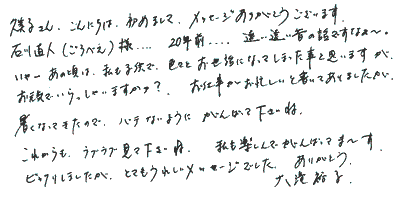 さん、こんにちは、初めまして、メッセージありがとうございます。
石川直人(ごうべえ)様.... 20年前.... 遠い遠い昔の話ですなぁ〜。
いやー あの頃は、私も子供で、色々とお世話になってしまった事と思いますが、
お元気でいらっしゃいますか? お仕事がお忙しいと書いてありましたが、
暑くなってきたので、バテないように がんばって下さいね。
これからも、ラブラブ見て下さいね。 私も楽しんでがんばってま〜す。
ビックリしましたが、とてもうれしいメッセージでした。 ありがとう。